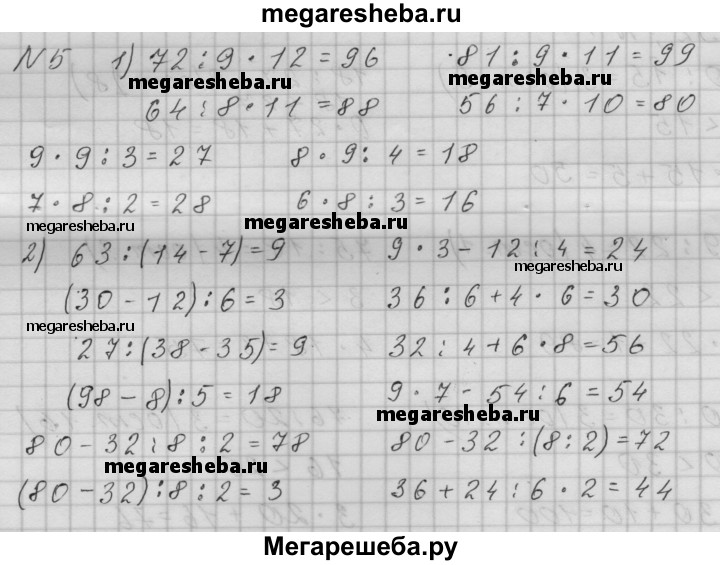 megaresheba.ru
N 5 1) 72 : 9 · 12 = 96 81 : 9 · 11 = 99
megaresheba.ru megaresheba.ru
64 : 8 · 11 = 88 56 : 7 · 10 = 80
9 · 9 : 3 = 27 8 · 9 : 4 = 18
7 · 8 : 2 = 28 6 · 8 : 3 = 16
megaresheba.ru megaresheba.ru
2) 63 : (14 - 7) = 9 9 · 3 - 12 : 4 = 24
megaresheba.ru
(30 - 12) : 6 = 3 36 : 6 + 4 · 6 = 30
megaresheba.ru
27 : (38 - 35) = 9 32 : 4 + 6 · 8 = 56
(98 - 8) : 5 = 18 9 · 7 - 54 : 6 = 54
megaresheba.ru
80 - 32 : 8 : 2 = 78 80 - 32 : (8 : 2) = 72
megaresheba.ru
(80 - 32) : 8 : 2 = 3 36 + 24 : 6 · 2 = 44
Мегарешеба.ру